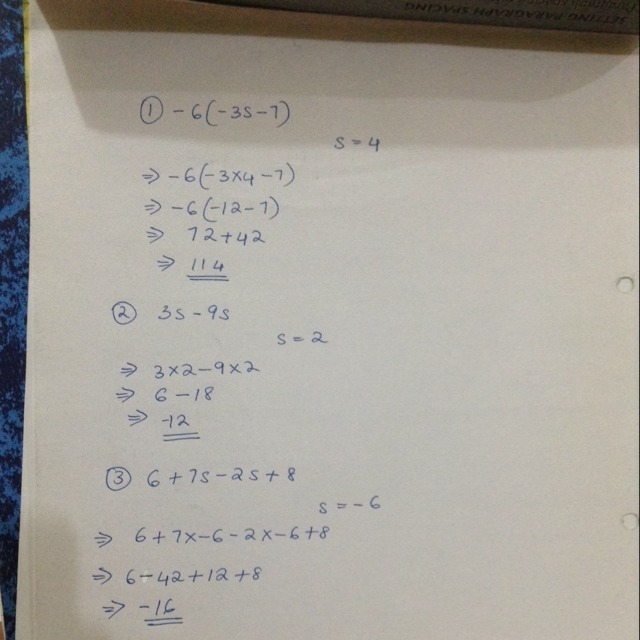 SETTING PARAGRAPH SPACING
① -6(-3s-7)
s = 4
⇒ -6(-3×4-7)
⇒ -6(-12-7)
⇒ 72+42
⇒ 114
② 3s-9s
s = 2
⇒ 3×2-9×2
⇒ 6-18
⇒ -12
③ 6+7s-2s+8
s = -6
⇒ 6+7×-6-2×-6+8
⇒ 6-42+12+8
⇒ -16